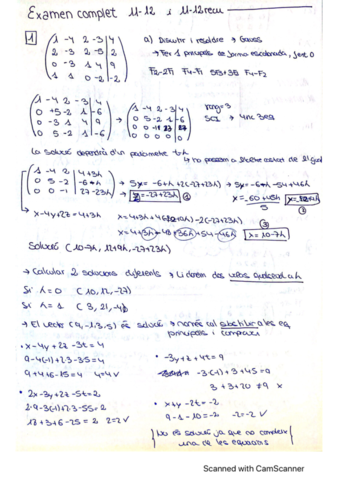 Examen complet 11-12 i 11-12 recu
1 (1 -4 2 -3 | 4
2 -3 2 -5 | 2
0 -3 1 4 | 9
1 1 0 -2 | -2)
a) Discutir i resoldre → Gauss
→ Fer 1 principals de forma escalonada, fent 0
F2-2F1 F4-F1 5F3+3F2 F4-F2
(1 -4 2 -3 | 4
0 +5 -2 1 | -6
0 -3 1 4 | 9
0 5 -2 1 | -6)
→ (1 -4 2 -3 | 4
0 5 -2 1 | -6
0 0 -1 23 | 27
0 0 0 0 | 0)
rang=3
SCI → 4inc 3eq
La solució dependrà d'un paràmetre t=λ
(1 -4 2 | 4+3λ
0 5 -2 | -6-λ
0 0 -1 | 27-23λ)
→ 5y = -6-λ+2(-27+23λ) → 5y = -6-λ-54+46λ
→ z=-27+23λ
x-4y+2z=4+3λ
x=10-7λ
Solució (10-7λ, -12+9λ, -27+23λ)
→ Calcular 2 solucions diferents → Li donem dos valors qualsevol a λ
Si λ=0 (10, -12, -27)
Si λ=1 (3, 21, -4)
→ El vector (9, -1, 3, 5) és solució → només cal substituir a les eq. principals i comprovar
• x-4y+2z-3t=4
9-4(-1)+2·3-3·5=4
9+4+6-15=4 4=4 ✓
• -3y+z+4t=9
-3·(-1)+3+4·5=9
3+3+20≠9 x
• 2x-3y+2z-5t=2
2·9-3(-1)+2·3-5·5=2
18+3+6-25=2 2=2 ✓
• x+y-2t=-2
9-1-10=-2 -2=-2 ✓
No és solució ja que no compleix
una de les equacions
Scanned with CamScanner